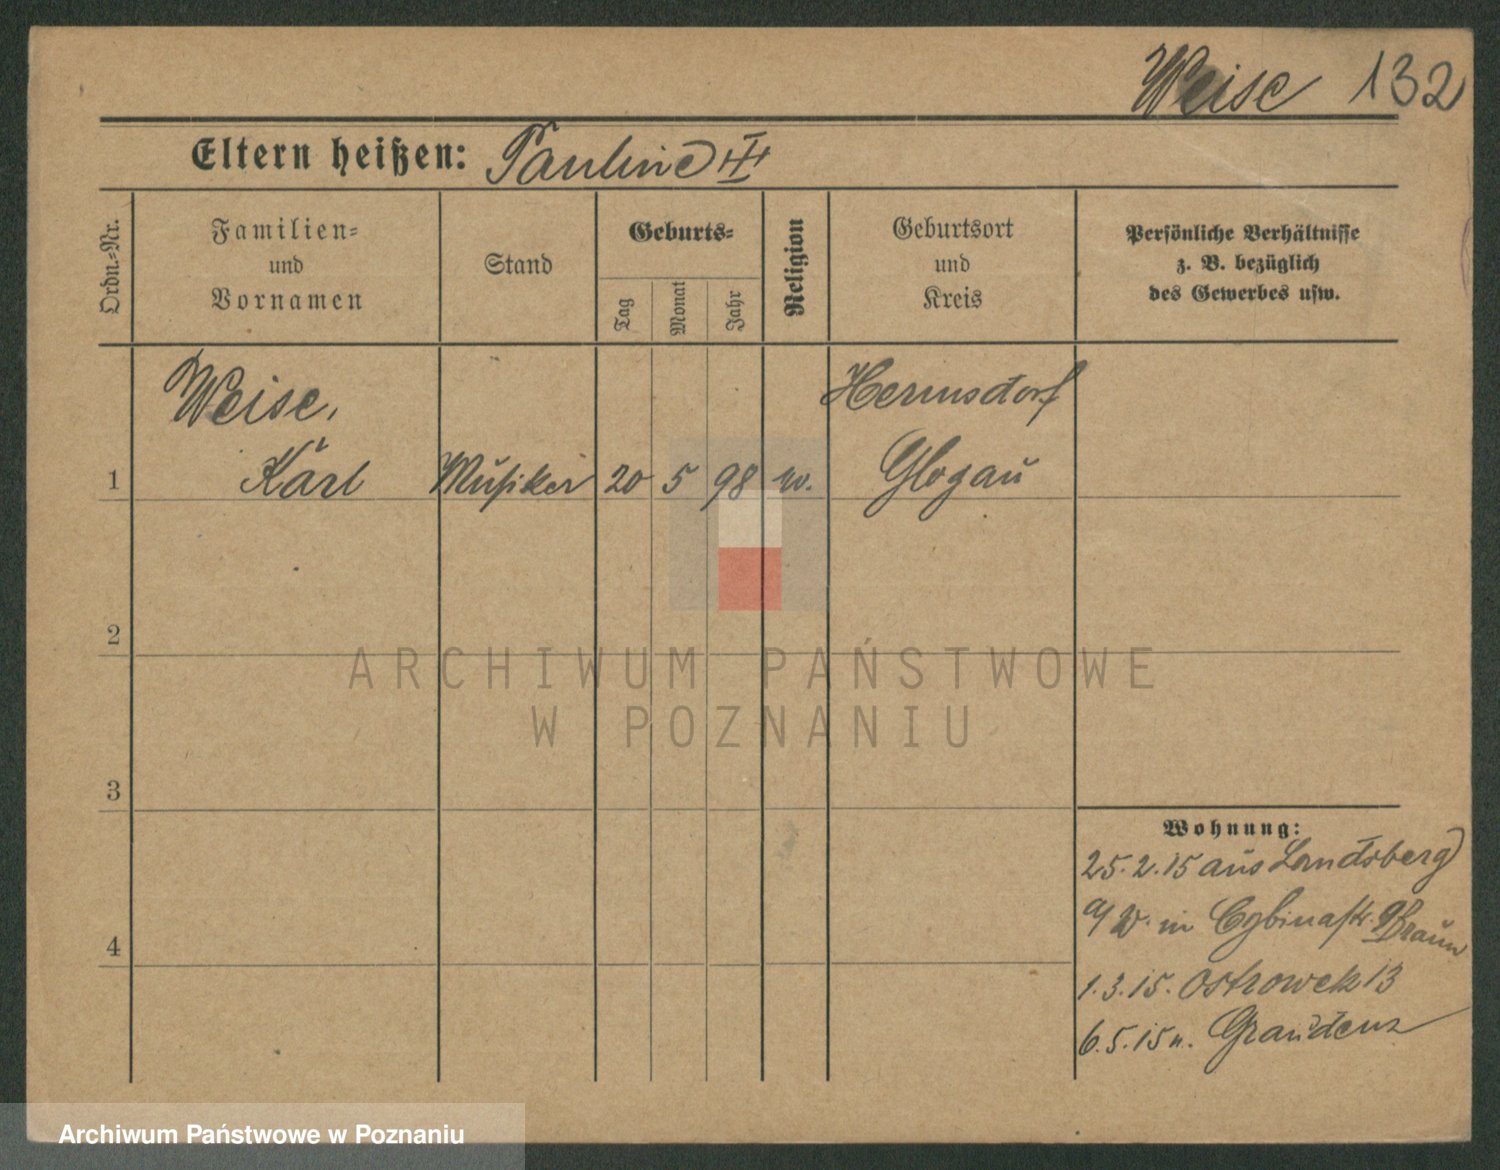 Weise 132
Eltern heißen: Pauline
Ordn.-Nr.
Familien-
und
Vornamen
Stand
Geburts-
Tag
Monat
Jahr
Religion
Geburtsort
und
Kreis
Persönliche Verhältnisse
z. B. bezüglich
des Gewerbes usw.
Weise,
Hermsdorf
1 Karl Musiker 20 5 98 Glogau
2
3
4
Wohnung:
25.2.15 aus Landsberg
a/W. in Cybinastr. 9 Braun
1.3.15. Ostrowek 13
6.5.15 n. Graudenz
ARCHIWUM PAŃSTWOWE
W POZNANIU
Archiwum Państwowe w Poznaniu